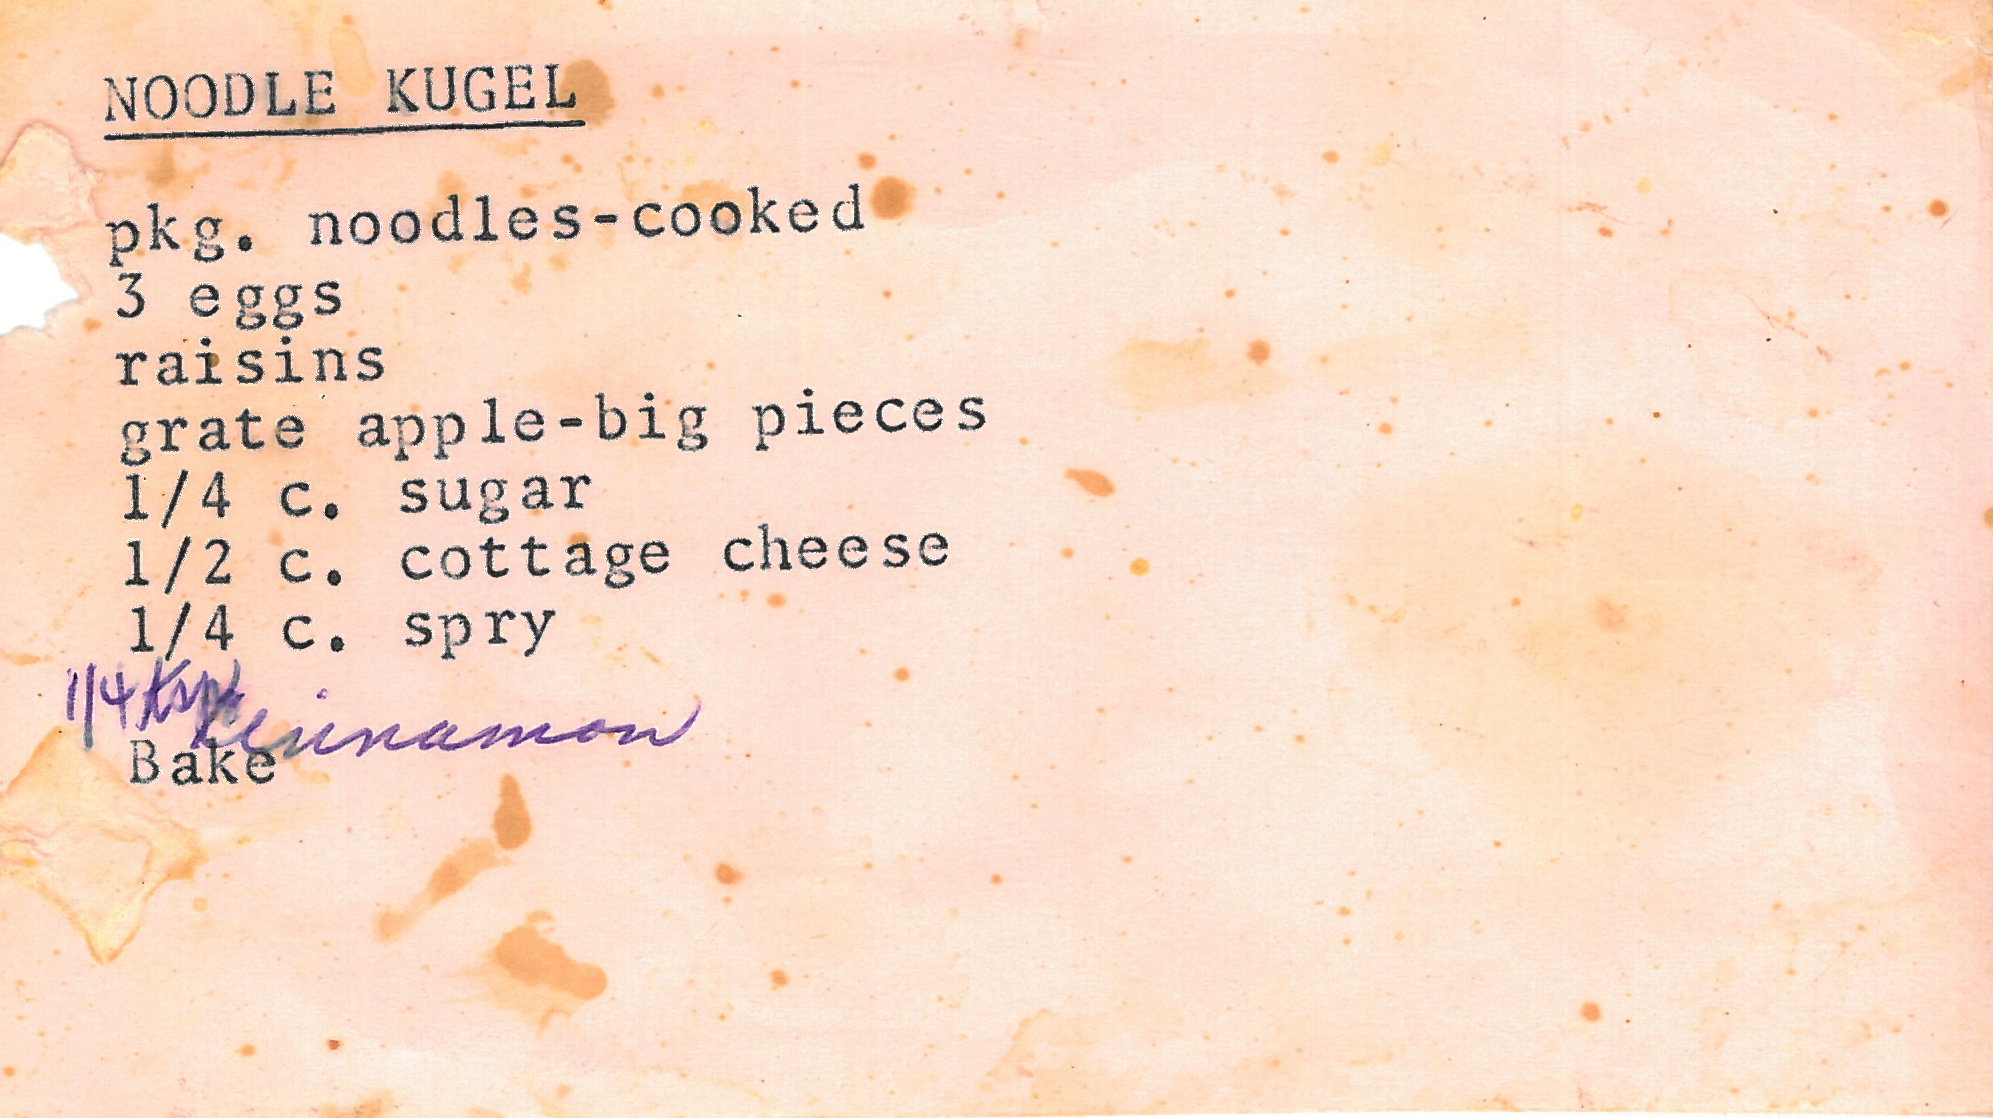 NOODLE KUGEL
pkg. noodles-cooked
3 eggs
raisins
grate apple-big pieces
1/4 c. sugar
1/2 c. cottage cheese
1/4 c. spry
1/4 tsp cinnamon
Bake